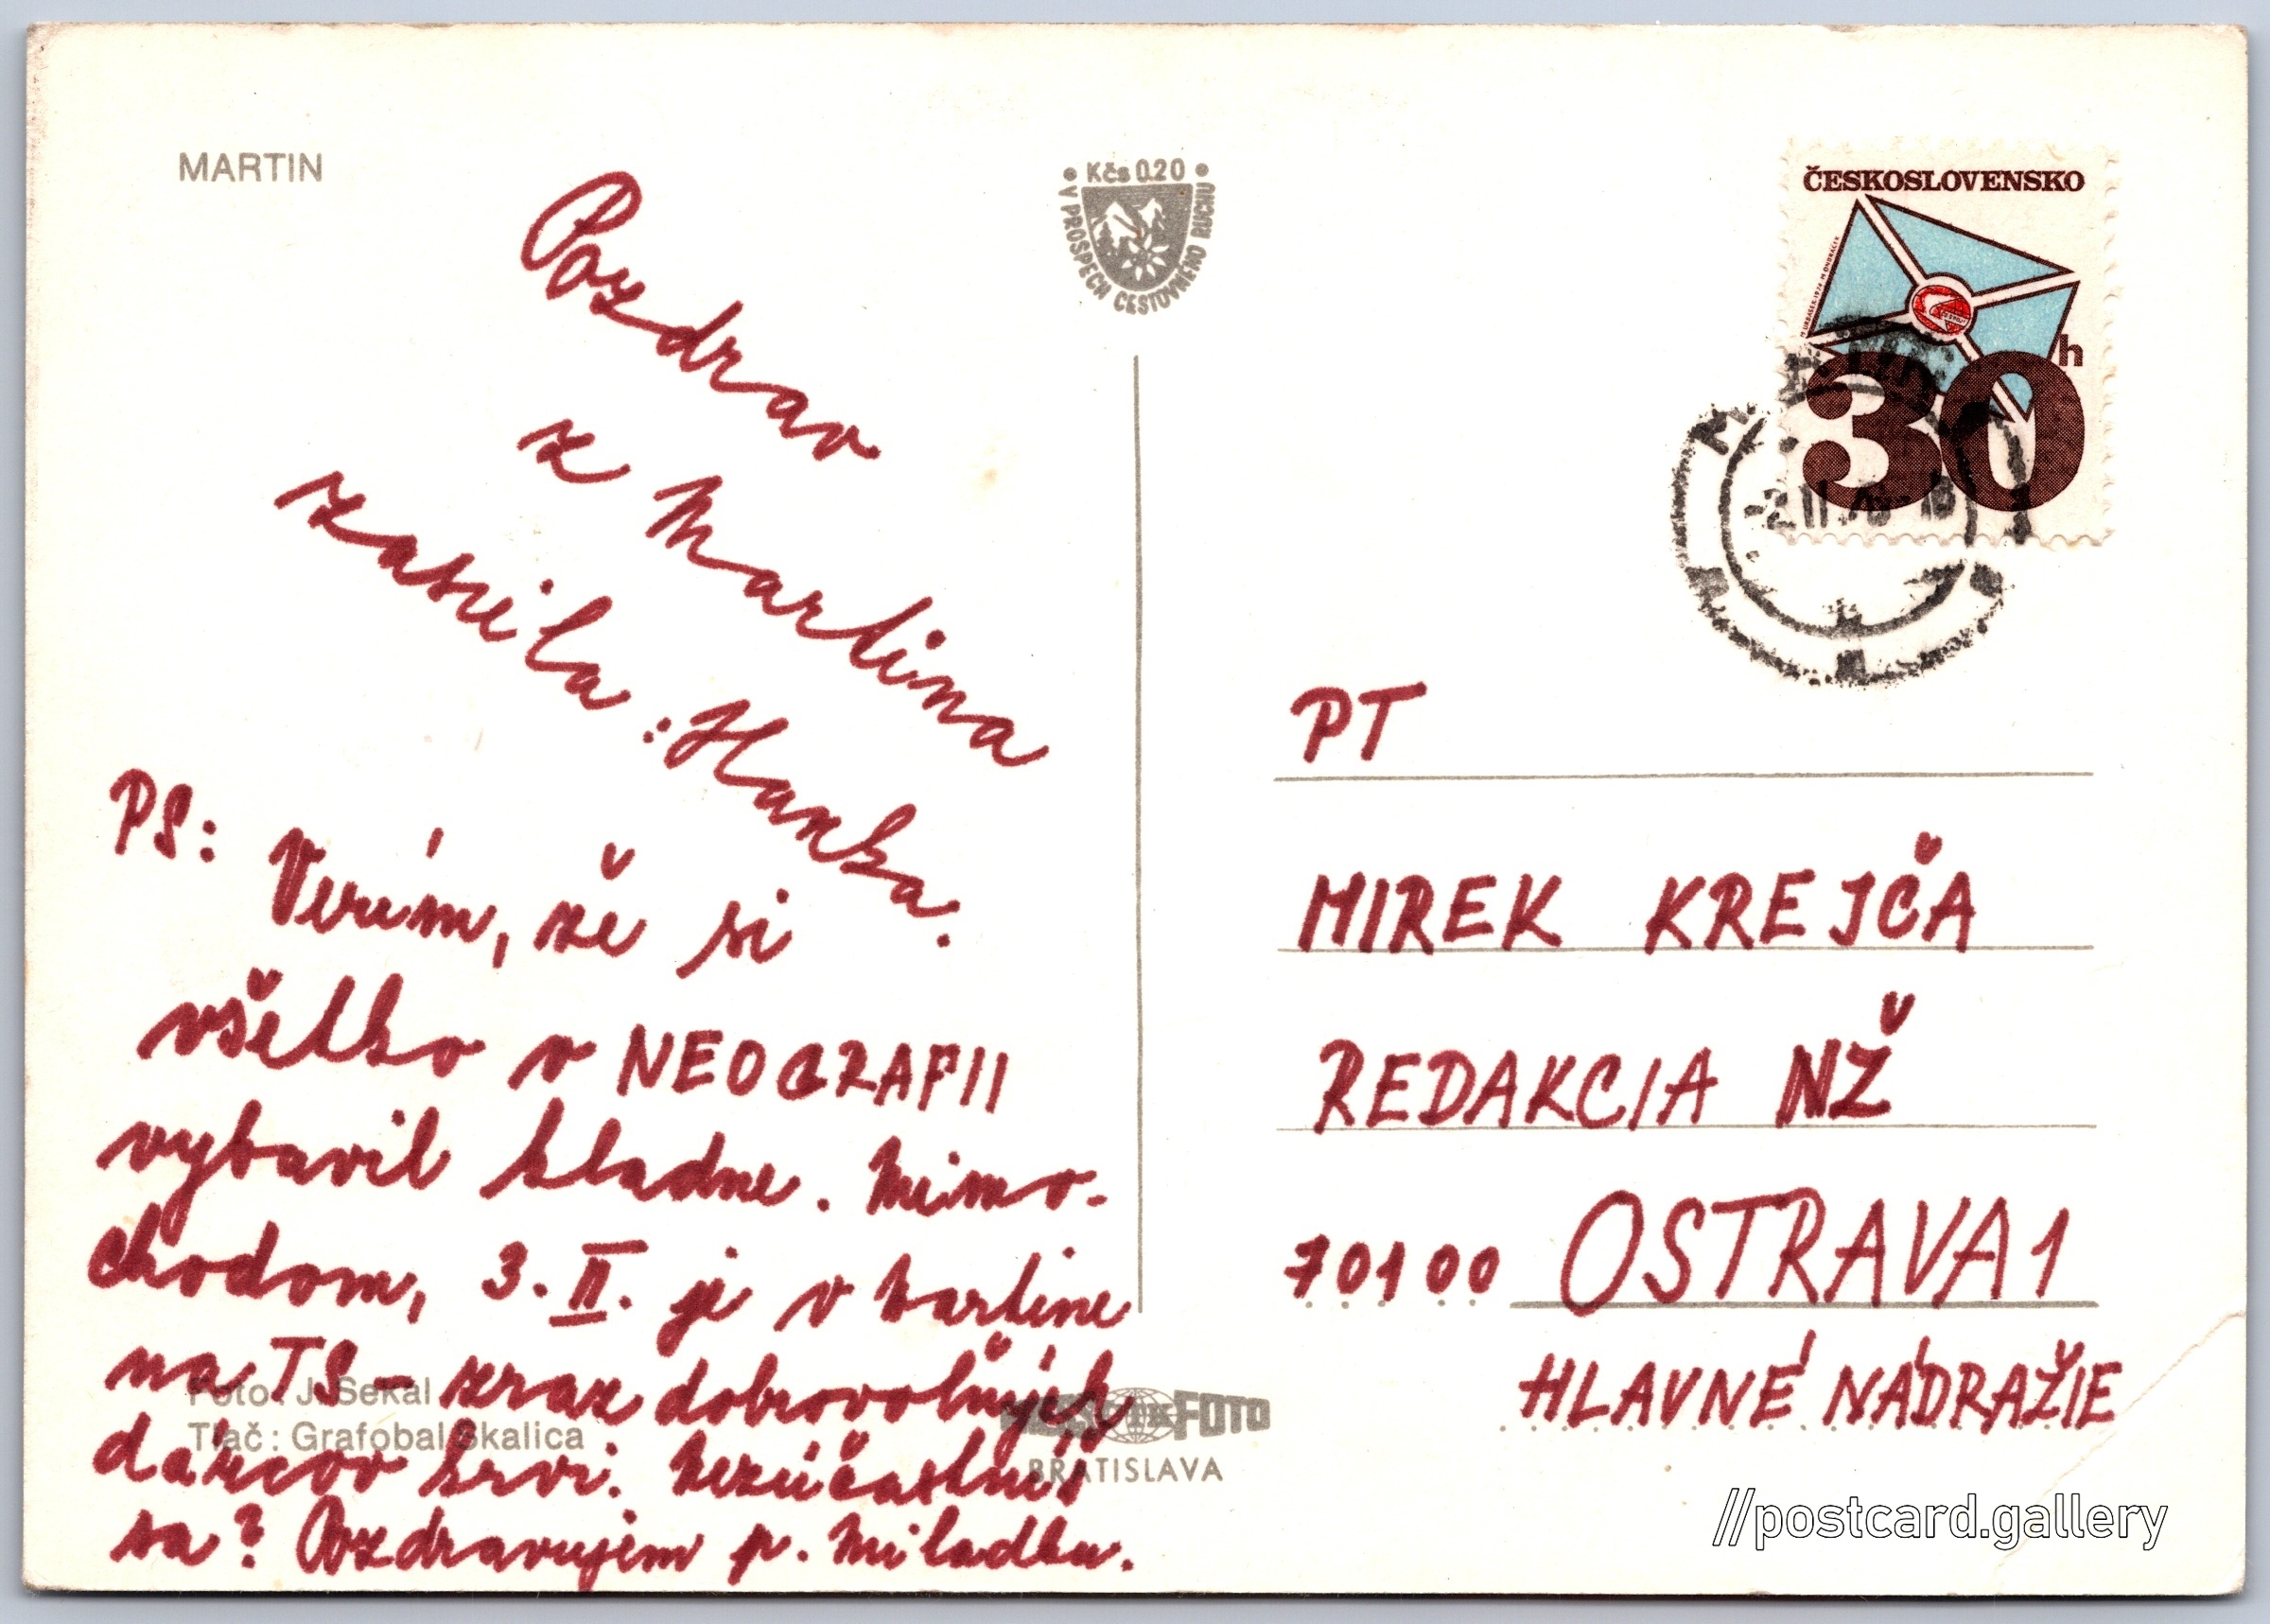 MARTIN
Pozdrav
z Martina
zasiela: Hanka.
PS: Verím, že si
všetko v NEOGRAFII
vybavil kladne. Mimo-
chodom, 3. II. je v Martine
na TS – zraz dobrovoľných
dárcov krvi. Nezúčastníš
sa? Pozdravujem p. Miladku.
Foto: J. Sekal
Tlač: Grafobal Skalica
• Kčs 0.20 •
V PROSPECH CESTOVNÉHO RUCHU
FOTO
BRATISLAVA
ČESKOSLOVENSKO
30 h
PT
MIREK KREJČA
REDAKCIA NŽ
70100 OSTRAVA 1
HLAVNÉ NÁDRAŽIE
//postcard.gallery